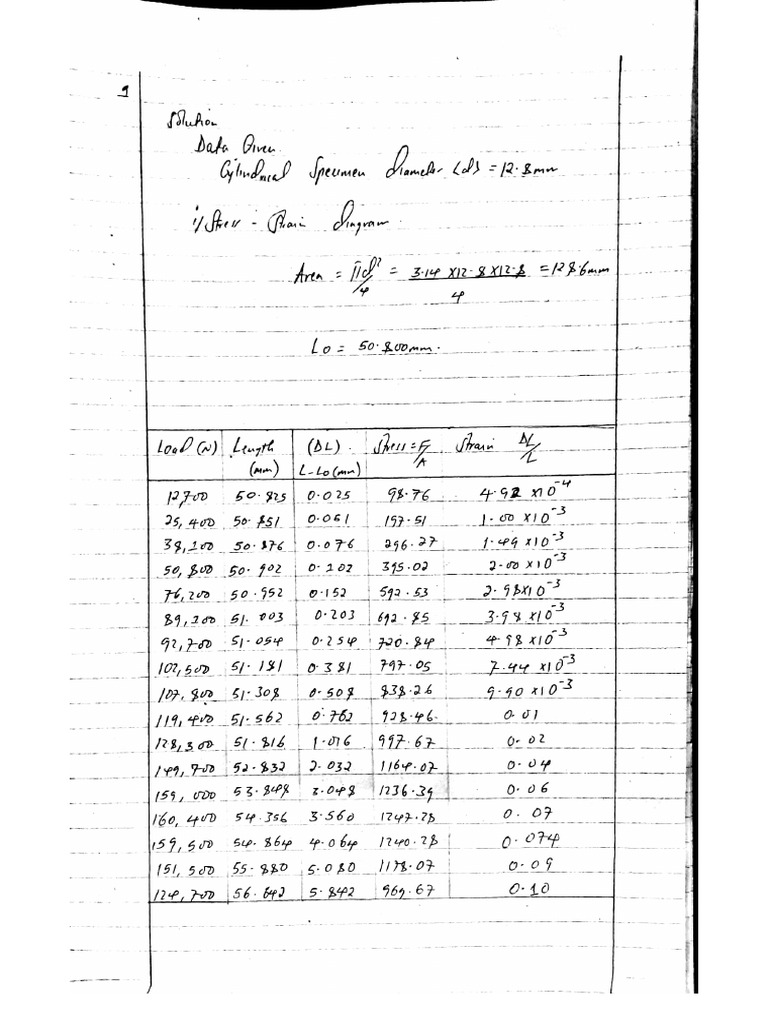 1
Solution
Data Given
Cylindrical Specimen diameter (d) = 12.8mm
i/ Stress - Strain diagram
Area = πd²/4 = 3.14 x12.8 x12.8 / 4 = 128.6mm
Lo = 50.800mm.
Load (N) Length (mm) (DL). L-Lo(mm) Stress = F/A Strain DL/L
12700 50.825 0.025 98.76 4.92 x10⁻⁴
25,400 50.851 0.051 197.51 1.00 x10⁻³
38,100 50.876 0.076 296.27 1.49 x10⁻³
50,800 50.902 0.102 395.02 2.00 x10⁻³
76,200 50.952 0.152 592.53 2.98x10⁻³
89,100 51.003 0.203 692.85 3.98 x10⁻³
92,700 51.054 0.254 720.84 4.98 x10⁻³
102,500 51.181 0.381 797.05 7.44 x10⁻³
107,800 51.308 0.508 838.26 9.90 x10⁻³
119,400 51.562 0.762 928.46. 0.01
128,300 51.816 1.016 997.67 0.02
149,700 52.832 2.032 1164.07 0.04
159,000 53.848 3.048 1236.39 0.06
160,400 54.356 3.560 1247.28 0.07
159,500 54.864 4.064 1240.28 0.074
151,500 55.880 5.080 1178.07 0.09
124,700 56.642 5.842 969.67 0.10